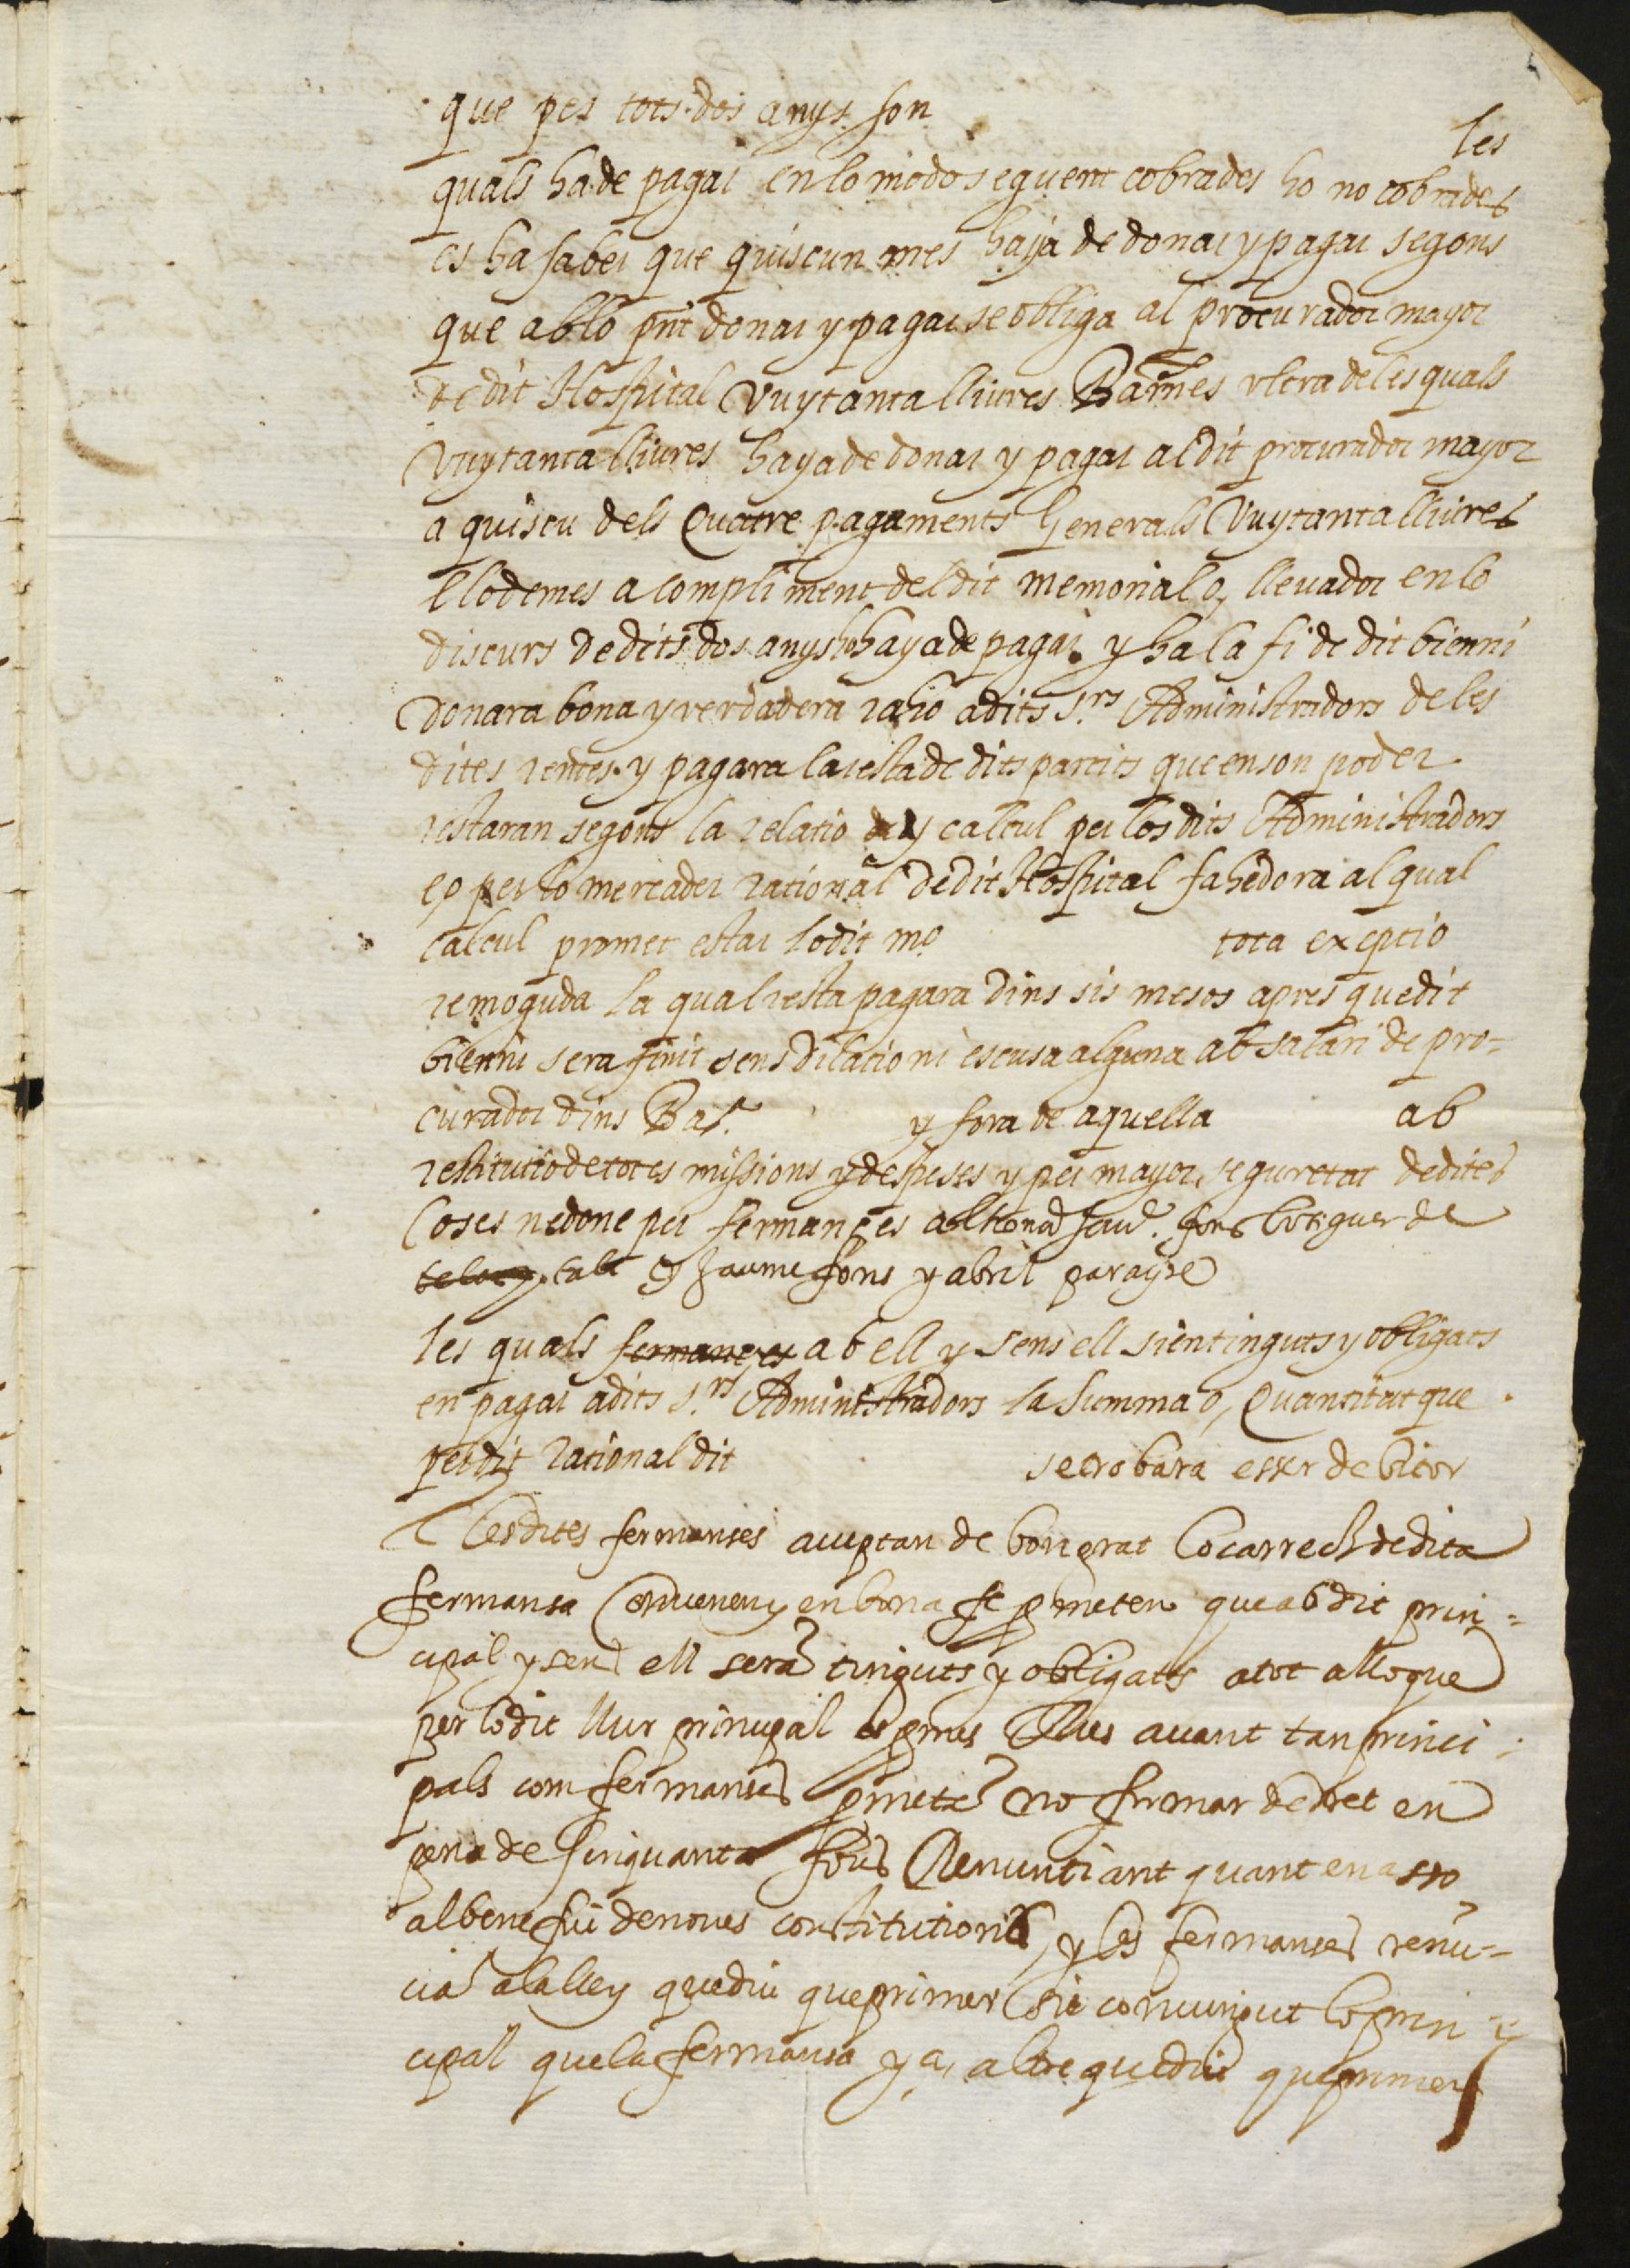 que per tots dos anys son
les
quals ha de pagar en lo modo seguent cobrades ho no cobrades
es ha saber que quiscun mes haja de donar y pagar segons
que ab lo pnt donar y pagar se obliga al procurador mayor
de dit Hospital Vuytanta lliures Barnes ultra de les quals
Vuytanta lliures haya de donar y pagar al dit procurador mayor
a quiscu dels Quatre pagaments Generals Vuytanta lliures
E lo demes a compliment del dit memorial o, llevador en lo
discurs de dits dos anys ho haya de pagar y ha la fi de dit bienni
donara bona y verdadera raho a dits s.rs Administradors de les
dites rentes y pagara la resta de dits partits que en son poder
restaran segons la relatio y calcul per los dits Administradors
e,o per lo mercader rational de dit Hospital fahedora al qual
calcul promet estar lo dit mo tota exeptio
remoguda la qual resta pagara dins sis mesos apres que dit
bienni sera finit sens dilatio ni escusa alguna ab salari de pro=
curador dins Bar.a y fora de aquella ab
restitutio de totes missions y despeses y per mayor seguretat de dites
Coses ne done per fermances al hond fons botiguer de
tall Jaume fons y abril parayre
les quals fermances ab ell y sens ell sien tinguts y obligats
en pagar a dits s.rs Administradors la Summa o, Quantitat que
per dit rational dit se trobara esser debitor
E les dites fermanses acceptan de bon grat lo carrech de dita
fermansa Convenen y en bona fe pmeten que ab dit prin=
cipal y sens ell seran tinguts y obligats a tot allo que
per lo dit llur principal es pmes Mes avant tan princi
pals com fermanses pmeten no fermar de dret en
pena de sinquanta sous Renuntiant quant en asso
al benefici de noves constitutions y les fermanses renu=
cian a la lley que diu que primer sie convingut lo prin
cipal que la fermansa y a, altre que diu que primer